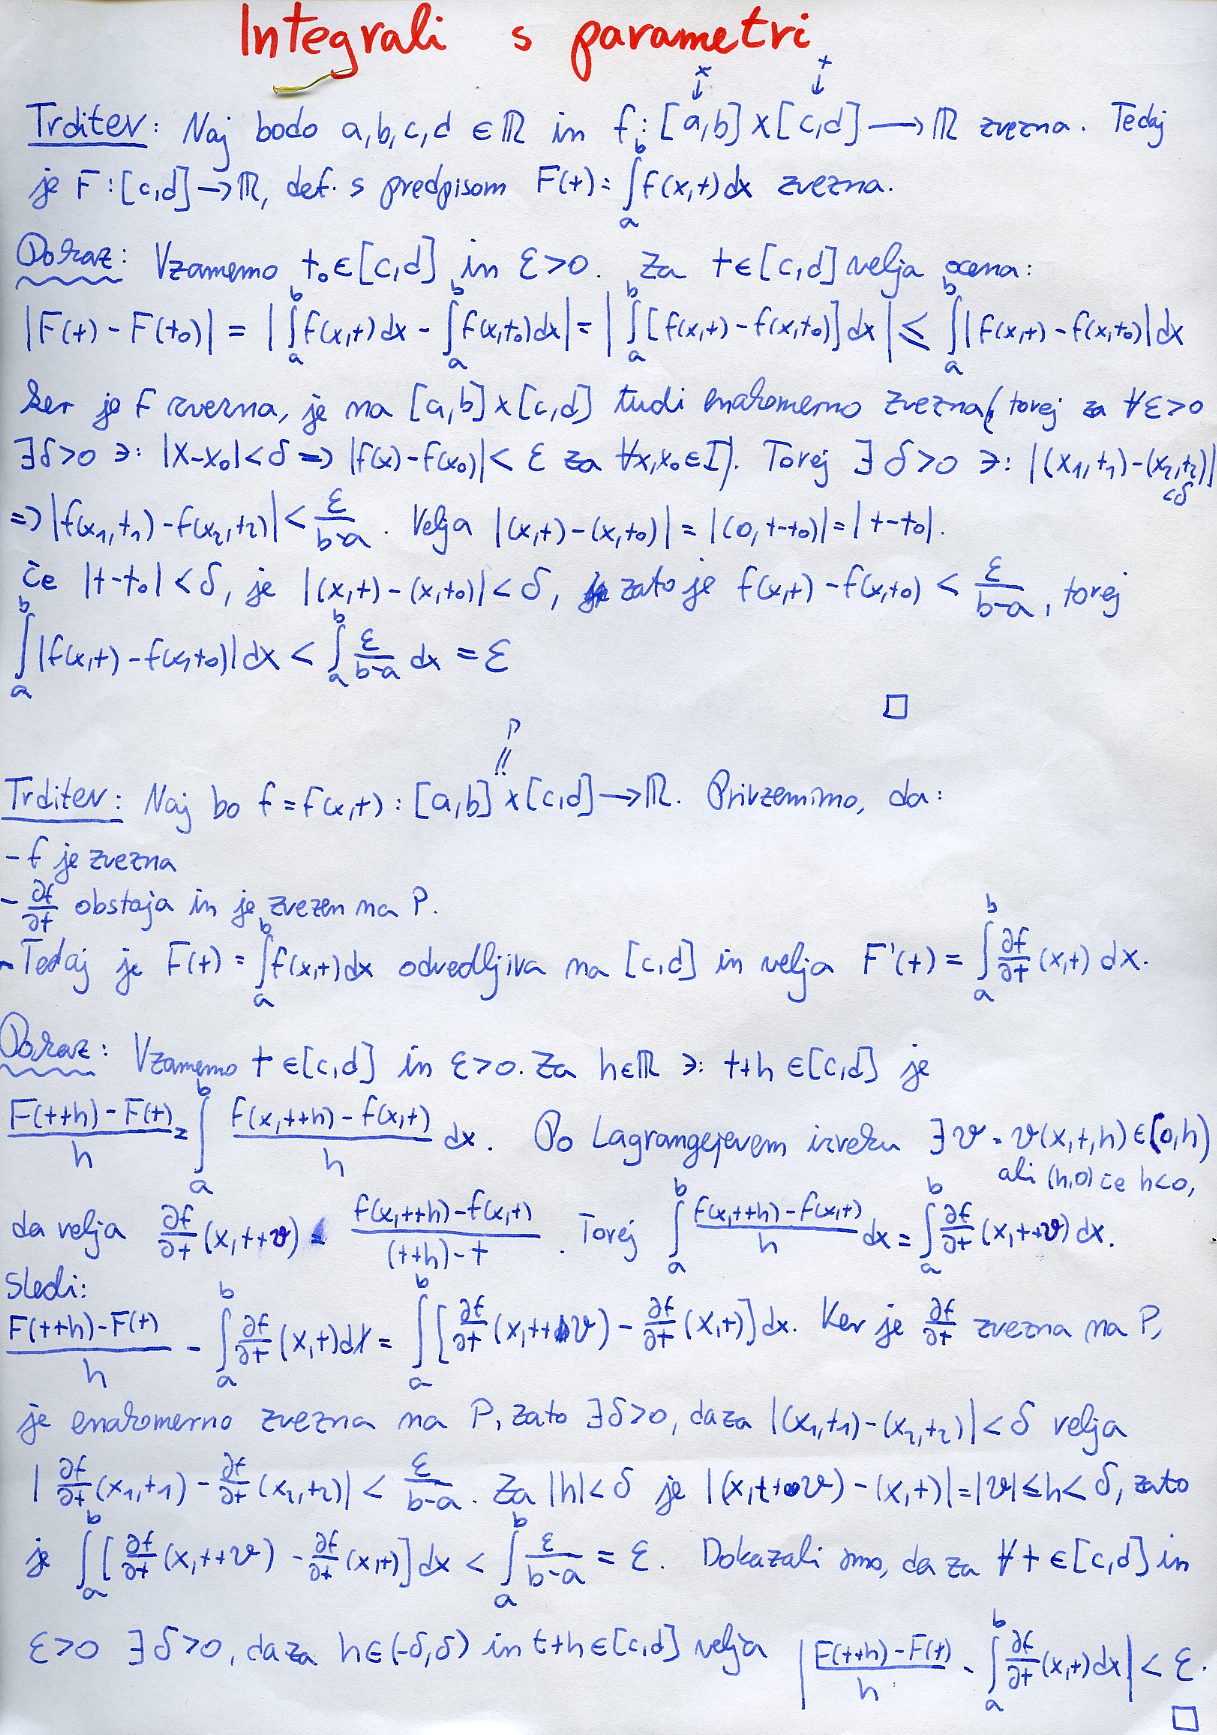 Integrali s parametri
x t
↓ ↓
Trditev: Naj bodo a,b,c,d ∈ ℝ in f: [a,b] × [c,d] → ℝ zvezna. Tedaj
je F: [c,d] → ℝ, def. s predpisom F(t) = ∫_a^b f(x,t) dx zvezna.
Dokaz: Vzamemo t₀ ∈ [c,d] in ε>0. Za t ∈ [c,d] velja ocena:
|F(t) - F(t₀)| = |∫_a^b f(x,t) dx - ∫_a^b f(x,t₀) dx| = |∫_a^b [f(x,t) - f(x,t₀)] dx| ≤ ∫_a^b |f(x,t) - f(x,t₀)| dx
Ker je f zvezna, je na [a,b] × [c,d] tudi enakomerno zvezna (torej za ∀ε>0
∃δ>0 ∋: |x-x₀|<δ => |f(x)-f(x₀)| < ε za ∀x,x₀∈I). Torej ∃ δ>0 ∋: |(x₁,t₁)-(x₂,t₂)| <δ
=> |f(x₁,t₁)-f(x₂,t₂)| < ε/(b-a). Velja |(x,t)-(x,t₀)| = |(0,t-t₀)| = |t-t₀|.
Če |t-t₀| < δ, je |(x,t)-(x,t₀)| < δ, zato je f(x,t) - f(x,t₀) < ε/(b-a), torej
∫_a^b |f(x,t) - f(x,t₀)| dx < ∫_a^b ε/(b-a) dx = ε
□
P
=
Trditev: Naj bo f = f(x,t): [a,b] × [c,d] → ℝ. Privzemimo, da:
- f je zvezna
- ∂f/∂t obstaja in je zvezen na P.
- Tedaj je F(t) = ∫_a^b f(x,t) dx odvedljiva na [c,d] in velja F'(t) = ∫_a^b ∂f/∂t (x,t) dx.
Dokaz: Vzamemo t ∈ [c,d] in ε>0. Za h∈ℝ ∋: t+h ∈ [c,d] je
(F(t+h) - F(t))/h = ∫_a^b (f(x,t+h) - f(x,t))/h dx. Po Lagrangejevem izreku ∃ϑ = ϑ(x,t,h) ∈ (0,h)
ali (h,0) če h<0,
da velja ∂f/∂t (x,t+ϑ) = (f(x,t+h) - f(x,t))/((t+h)-t). Torej ∫_a^b (f(x,t+h) - f(x,t))/h dx = ∫_a^b ∂f/∂t (x,t+ϑ) dx.
Sledi:
(F(t+h)-F(t))/h - ∫_a^b ∂f/∂t (x,t) dx = ∫_a^b [∂f/∂t (x,t+ϑ) - ∂f/∂t (x,t)] dx. Ker je ∂f/∂t zvezna na P,
je enakomerno zvezna na P, zato ∃δ>0, da za |(x₁,t₁)-(x₂,t₂)| < δ velja
|∂f/∂t (x₁,t₁) - ∂f/∂t (x₂,t₂)| < ε/(b-a). Za |h|<δ je |(x,t+ϑ) - (x,t)| = |ϑ| ≤ h < δ, zato
je ∫_a^b [∂f/∂t (x,t+ϑ) - ∂f/∂t (x,t)] dx < ∫_a^b ε/(b-a) = ε. Dokazali smo, da za ∀t ∈ [c,d] in
ε>0 ∃δ>0, da za h∈(-δ,δ) in t+h∈[c,d] velja |(F(t+h) - F(t))/h - ∫_a^b ∂f/∂t (x,t) dx| < ε.
□